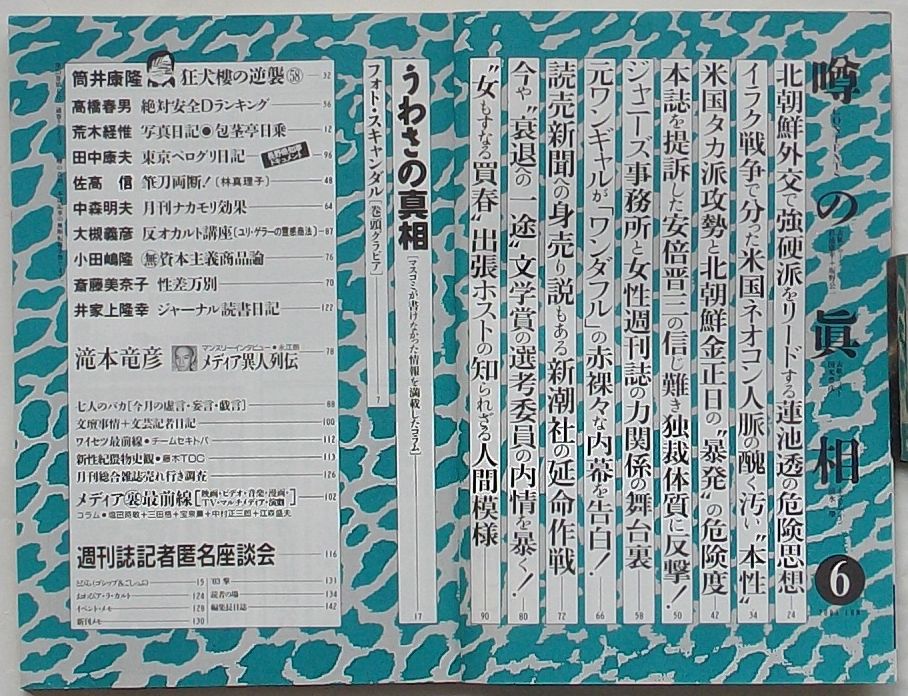 噂の眞相
6
北朝鮮外交で強硬派をリードする蓮池透の危険思想 24
イラク戦争で分った米国ネオコン人脈の醜く汚い“本性” 34
米国タカ派攻勢と北朝鮮金正日の“暴発”の危険度 42
本誌を提訴した安倍晋三の信じ難き独裁体質に反撃! 50
ジャニーズ事務所と女性週刊誌の力関係の舞台裏 58
元ワンギャルが「ワンダフル」の赤裸々な内幕を告白! 66
読売新聞への身売り説もある新潮社の延命作戦 72
今や“衰退への一途”文学賞の選考委員の内情を暴く! 80
“女もすなる買春”出張ホストの知られざる人間模様 90
うわさの真相[マスコミが書けなかった情報を満載したコラム] 17
フォト・スキャンダル[巻頭グラビア] 7
筒井康隆 狂犬樓の逆襲58 32
高橋春男 絶対安全Dランキング 56
荒木経惟 写真日記●包茎亭日乗 12
田中康夫 東京ペログリ日記 96
佐高 信 筆刀両断!(林真理子) 48
中森明夫 月刊ナカモリ効果 64
大槻義彦 反オカルト講座(ユリ・ゲラーの霊感商法) 87
小田嶋隆 無資本主義商品論 76
斎藤美奈子 性差万別 70
井家上隆幸 ジャーナル読書日記 122
マンスリーインタビュー●永江朗
滝本竜彦 メディア異人列伝 78
七人のバカ[今月の虚言・妄言・戯言] 88
文壇事情+文芸記者日記 100
ワイセツ最前線●チームセキトバ 112
新性紀猥物史観●藤木TDC 113
月刊総合雑誌売れ行き調査 126
メディア裏最前線[映画・ビデオ・音楽・漫画・TV・マルチメディア・演劇] 102
週刊誌記者匿名座談会 116
15
124
イベント・メモ 128
新刊メモ 130
'03 撃 131
読者の場 134
編集長日誌 142